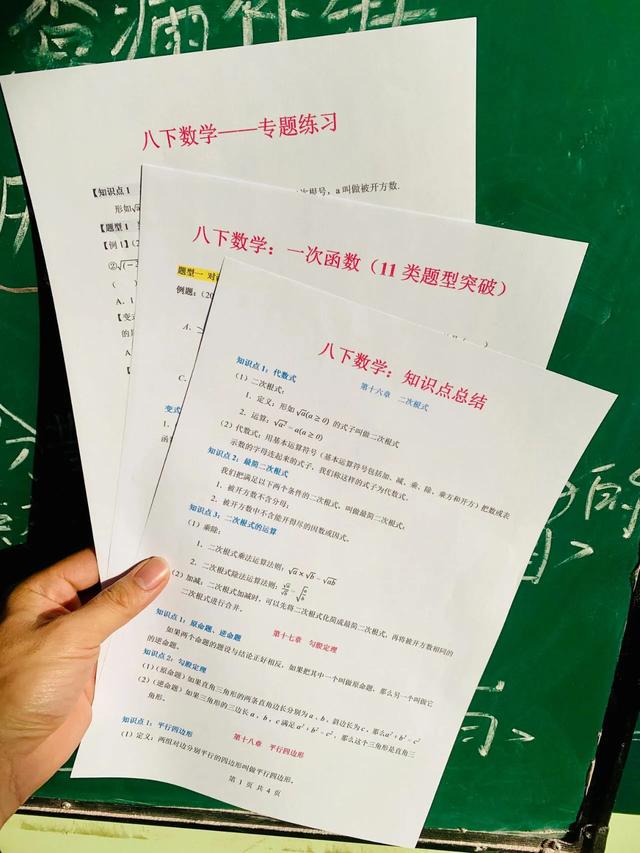 查漏补
八下数学——专题练习
【知识点1
次根号，a 叫做被开方数.
形如
【题型1
【例1】（2
②
（ ）
A．1
【变式
的是
八下数学：一次函数（11 类题型突破）
题型一 对
例题：（20
A．
C．
变式
1．（
函数
八下数学：知识点总结
第十六章 二次根式
知识点 1：代数式
（1）二次根式：
1．定义：形如 √a(a ≥ 0) 的式子叫做二次根式
2．运算：√a² = a(a ≥ 0)
（2）代数式：用基本运算符号（基本运算符号包括加、减、乘、除、乘方和开方）把数或表
示数的字母连起来的式子，我们称这样的式子为代数式。
知识点 2：最简二次根式
我们把满足以下两个条件的二次根式，叫做最简二次根式：
1．被开方数不含分母；
2．被开方数中不含能开得尽的因数或因式。
知识点 3：二次根式的运算
（1）乘除：
1．二次根式乘法运算法则：√a × √b = √ab
2．二次根式除法运算法则：√a/√b = √(a/b)
（2）加减：二次根式加减时，可以先将二次根式化简成最简二次根式，再将被开方数相同的
二次根式进行合并。
第十七章 勾股定理
知识点 1：原命题、逆命题
如果两个命题的题设与结论正好相反，如果把其中一个叫做原命题，那么另一个叫做它
的逆命题。
知识点 2：勾股定理
（1）（原命题）如果直角三角形的两条直角边长分别为 a、b，斜边长为 c，那么 a² + b² = c²
（2）（逆命题）如果三角形的三边长 a，b，c 满足 a² + b² = c²，那么这个三角形是直角三
角形。
第十八章 平行四边形
知识点 1：平行四边形
（1）定义：两组对边分别平行的四边形叫做平行四边形。
第 1 页 共 4 页